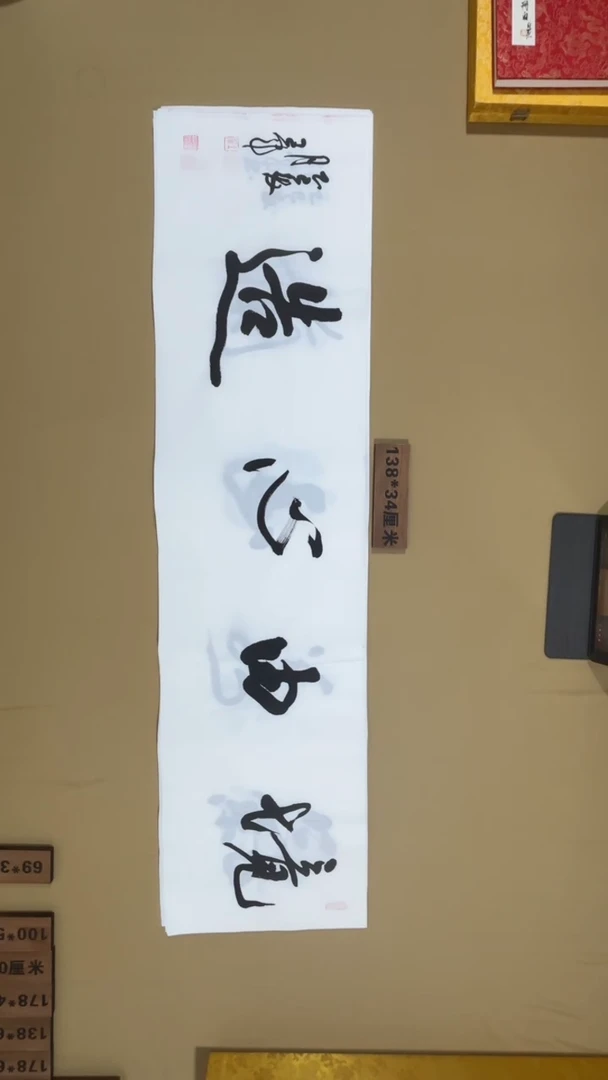 境由心造
138*34厘米
69*3
100*5
0厘米
178*4
138*6
178*6